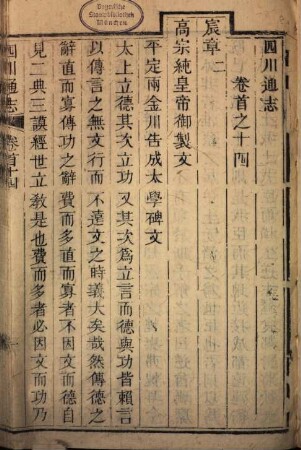 Bayerische
Staatsbibliothek
München
四川通志
卷首之十四
宸章二
高宗純皇帝御製文
平定兩金川告成太學碑文
太上立德其次立功又其次爲立言而德與功皆賴言
以傳言之無文行而不遠文之時義大矣哉然傳德之
辭直而寡傳功之辭費而多直而寡者不因文而德自
見二典三謨經世立教是也費而多者必因文而功乃
四川通志
卷首十四
一